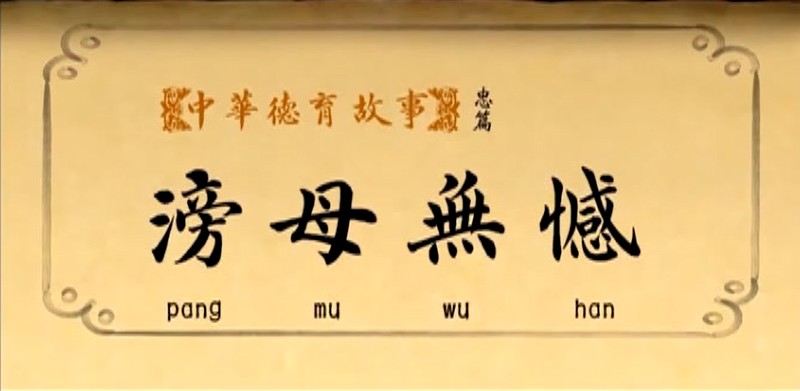 中華德育故事 忠篇
滂母無憾
pang mu wu han